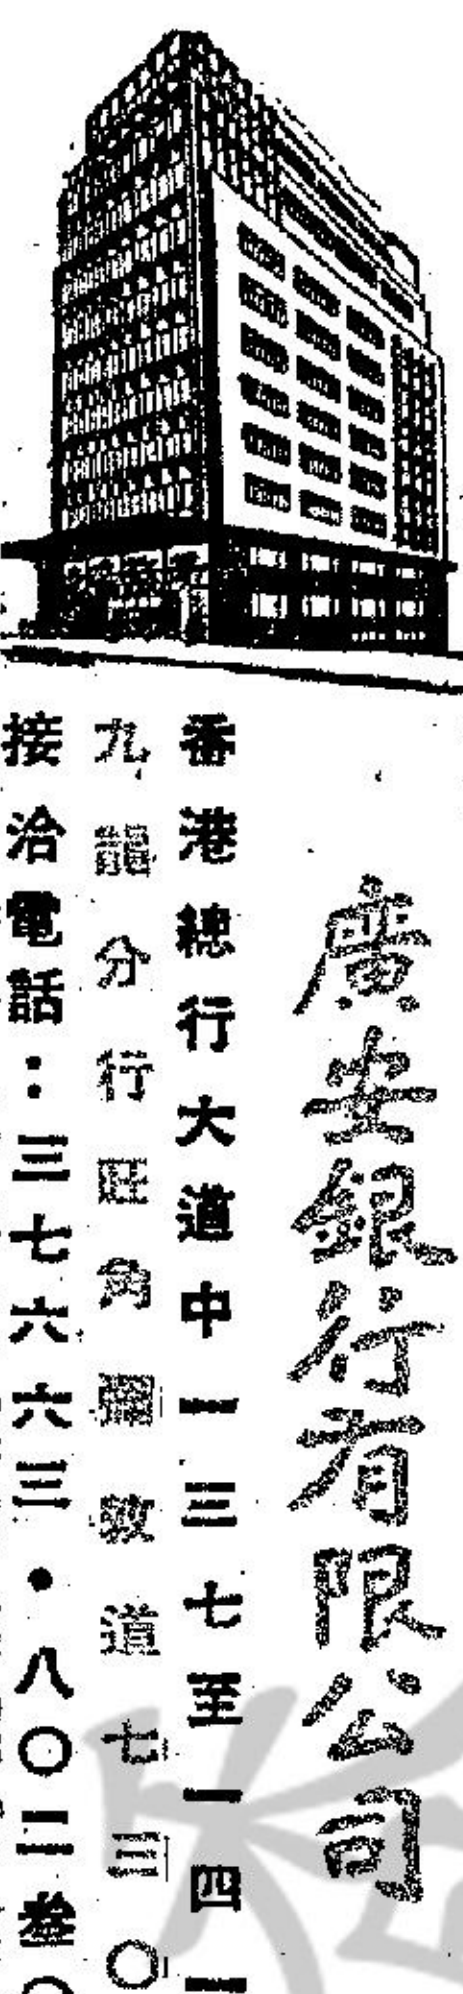 廣安銀行有限公司
香港總行大道中一三七至一四一
九龍分行旺角彌敦道七三〇
接洽電話：三七六六三・八〇二叁〇